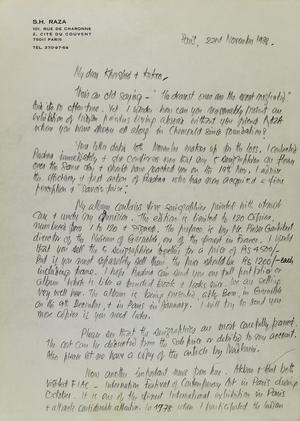 S.H. RAZA
101, RUE DE CHARONNE
2, CITÉ DU COUVENT
75011 PARIS
TEL. 370-97-64
Paris, 22nd November 1984.
My dear Khorshed + Kekoo,
have an old saying - "The dearest ones are the most neglected"
do so often true. Yet I wonder how can you reasonably present an
exhibition of Indian painting living abroad without your friend RAZA
when you have shown all along in Chemould since foundation?
Your letter dated November makes up for the loss. I contacted
immediately & she confirms now that my 5 serigraphies as flown
over the same day & should have reached you on the 19th Nov. I admire
the efficiency & fast action of who has even acquired a fine
perception of "savoir faire".
My album contains five serigraphies printed with utmost
care & under my supervision. The edition is limited to 120 copies,
numbered from 1 to 120 & signed. The preface is by Mr. Pierre Gaudibert
director of the Museum of Grenoble one of the in France. I wish
that you sell the 5 serigraphies together for a price of Rs 4500/-
but if you must separately sell them the price should be Rs 1200/- each
including frame. I hope can send you one full portfolio or
album which is like a bound book & looks nice for an setting
very well here. The album is being presented, after Bern, in Grenoble
on the December, & in Paris in January. I will try to send you
more copies if you need later.
Please see that the serigraphies are most carefully framed.
The cost can be deducted from the sale price or debited to my account.
Also please let me have a copy of the article by
Now another important news for you. Akbar & that bets
visited F.I.A.C. - International Festival of Contemporary Art in Paris during
October. It is one of the direct international exhibition in Paris
& attracts considerable attention. In 1978 when I participated the Indian